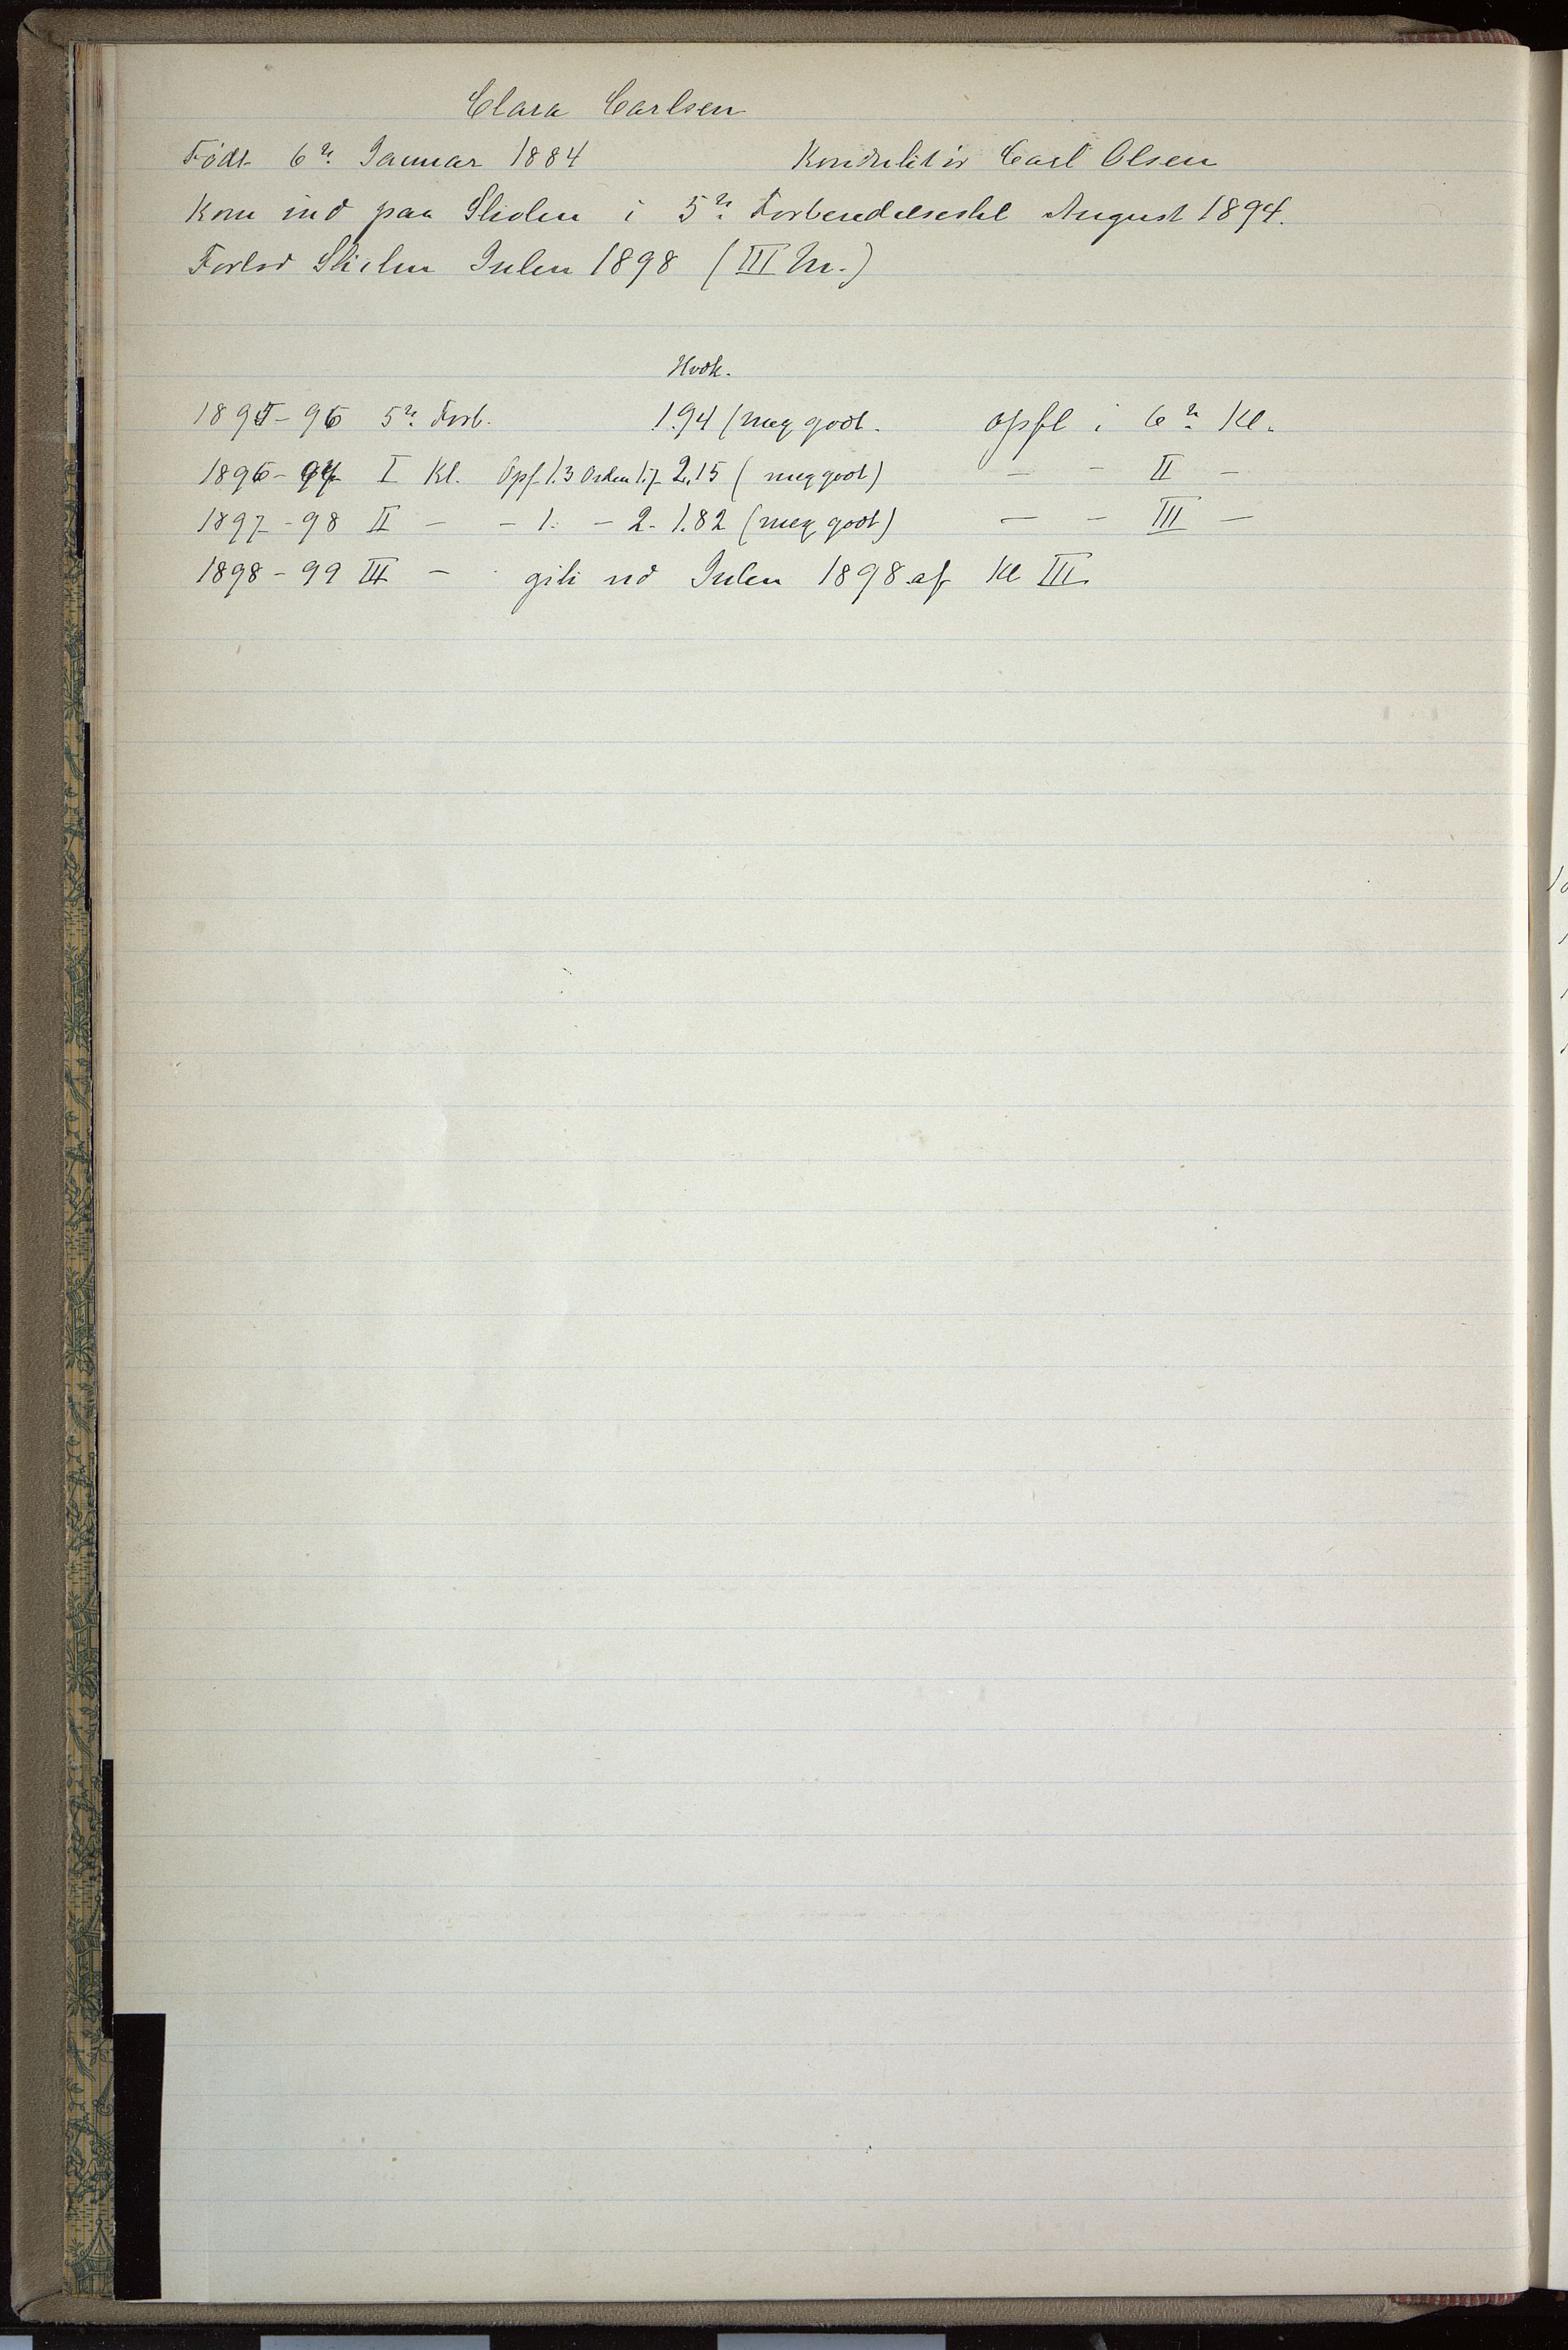 Clara Carlsen
Født 6te Januar 1884 Konduktør Carl Olsen
Kom ind paa Skolen i 5te Forberedelseskl August 1894.
Forlod Skolen Julen 1898 (III M.)
Hvdk.
1895-96 5te Forb. 1.94 (meg godt. opfl i 6te Kl.
1896-97 I Kl. Opf 1.3 Orden 1.7 2,15 (meg godt) — - II -
1897-98 II - - 1. - 2. 1.82 (meg godt) — - III —
1898-99 III - gik ud Julen 1898 af Kl III.